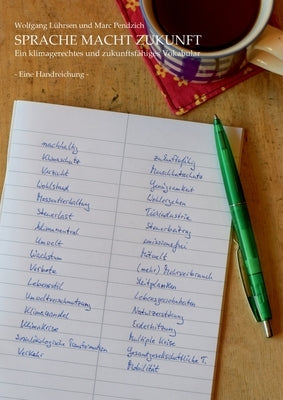 Wolfgang Lührsen und Marc Pendzich
SPRACHE MACHT ZUKUNFT
Ein klimagerechtes und zukunftsfähiges Vokabular
- Eine Handreichung -
nachhaltig zukunftsfähig
Klimaschutz Menschheitsschutz
Verzicht Genügsamkeit
Wohlstand Wohlergehen
Massentierhaltung Tierindustrie
Steuerlast Steuerbeitrag
klimaneutral emissionsfrei
Umwelt Mitwelt
Wachstum (mehr) Mehrverbrauch
Verbote Leitplanken
Lebensstil Lebensgewohnheiten
Umweltverschmutzung Naturzerstörung
Klimawandel Erderhitzung
Klimakrise Multiple Krise
Sozialökologische Transformation Gesamtgesellschaftliche T.
Verkehr Mobilität